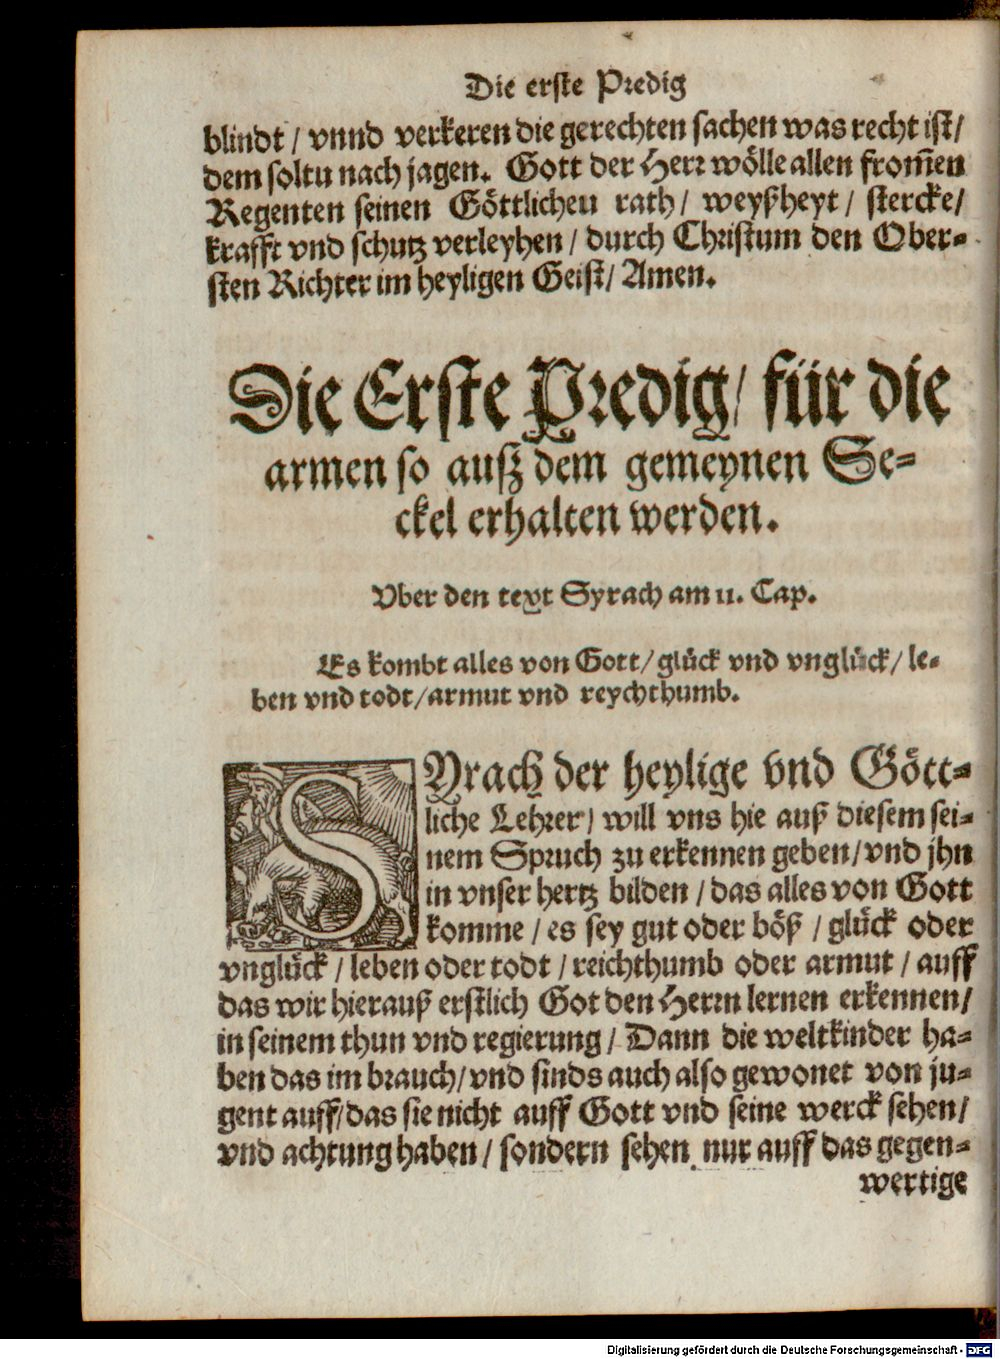 Die erste Predig
blindt / vnnd verkeren die gerechten sachen was recht ist/
dem soltu nach jagen. Gott der Herr wölle allen from̄en
Regenten seinen Göttlichen rath/ weyßheyt / stercke/
krafft vnd schutz verleyhen / durch Christum den Ober-
sten Richter im heyligen Geist/ Amen.
Die Erste Predig/ für die
armen so ausz dem gemeynen Se-
ckel erhalten werden.
Vber den text Syrach am 11. Cap.
Es kombt alles von Gott/ glück vnd vnglück/ le-
ben vnd todt/ armut vnd reychthumb.
SYrach der heylige vnd Gött-
liche Lehrer/ will vns hie auß diesem sei-
nem Spruch zu erkennen geben/ vnd jhn
in vnser hertz bilden / das alles von Gott
komme / es sey gut oder böß / glück oder
vnglück / leben oder todt / reichthumb oder armut / auff
das wir hierauß erstlich Got den Herrn lernen erkennen/
in seinem thun vnd regierung / Dann die weltkinder ha-
ben das im brauch/ vnd sinds auch also gewonet von ju-
gent auff/ das sie nicht auff Gott vnd seine werck sehen/
vnd achtung haben / sondern sehen nur auff das gegen-
wertige
Digitalisierung gefördert durch die Deutsche Forschungsgemeinschaft - DFG